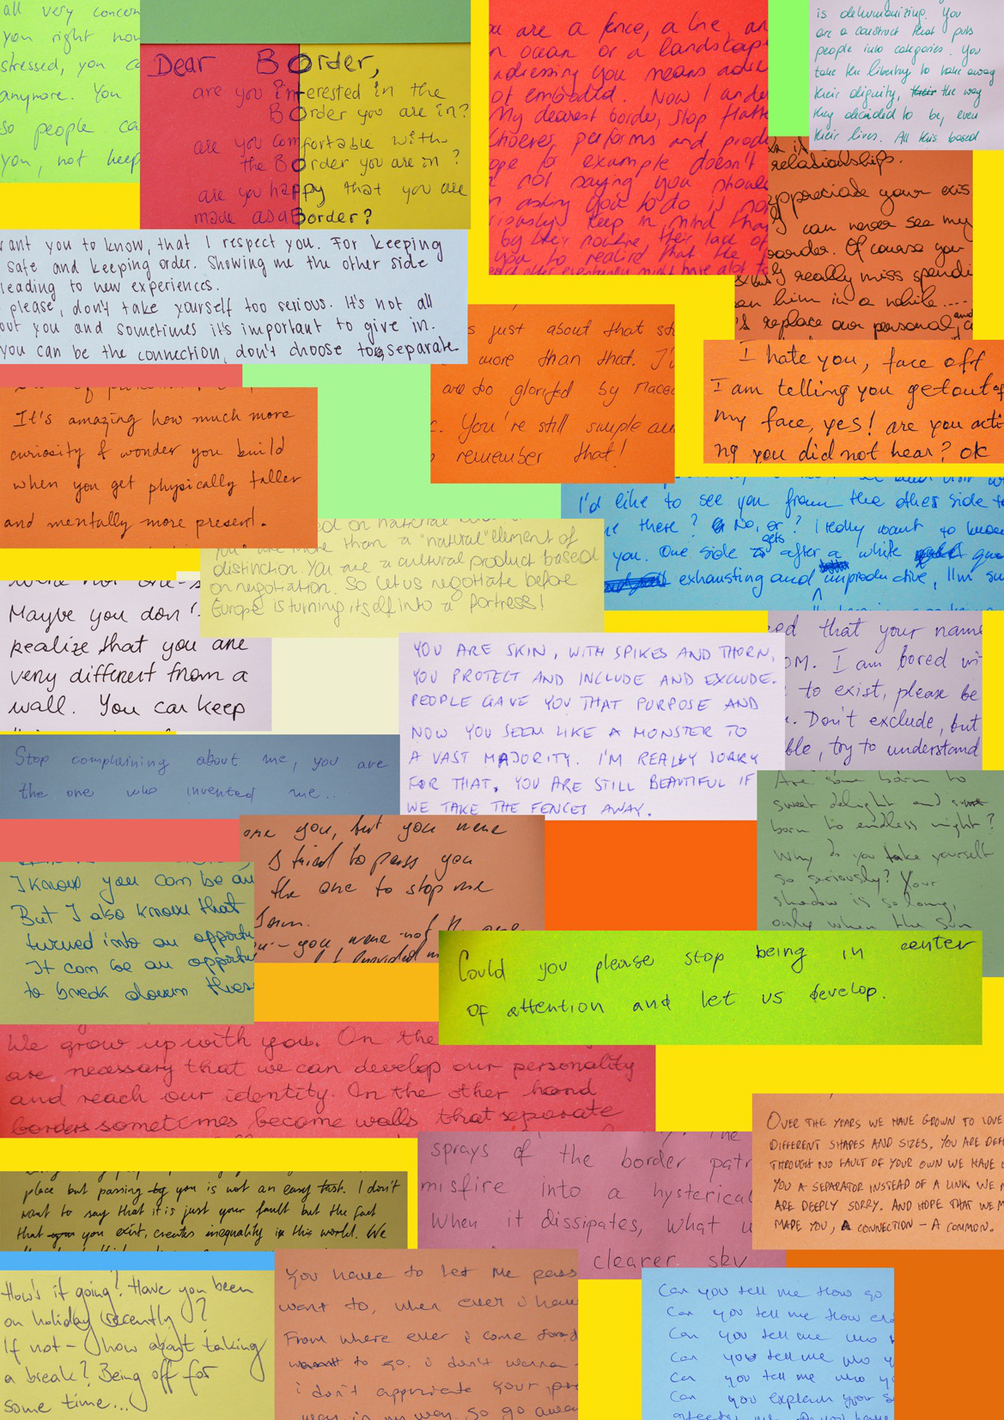 all very concer
you right now
stressed, you ca
anymore. You
so people ca
you, not keep
Dear Border,
are you interested in the
Border you are in?
are you comfortable with
the Border you are in?
are you happy that you are
made as a Border?
u are a fence, a line, an
n ocean or a landscap
ddressing you means
ot embodied. Now I
My dearest border, stop
performs and
for example doesn't
not saying you should
asking you to do is no
keep in mind that
by their routine, their lack of
you to realize that the
is dehumanizing. You
are a construct that puts
people into categories. You
take the liberty to take away
their dignity, their the way
they decided to be, even
their lives. All this based
relationships.
appreciate your exis
I can never see my
Of course you
really miss spendi
him in a while.....
replace our personal,
want you to know, that I respect you. For keeping
safe and keeping order. Showing me the other side
leading to new experiences.
please, don't take yourself too serious. It's not all
out you and sometimes it's important to give in.
you can be the connection, don't choose to separate
s just about that st
more than that. I'
are so glorifd by
c. You're still simple an
remember that!
I hate you, face off
I am telling you get out of
my face, yes! are you acti
ng you did not hear? ok
It's amazing how much more
curiosity & wonder you build
when you get physically taller
and mentally more present.
I'd like to see you from the other side
there? No, or? I really want to know
you. One side gets after a while
exhausting and unproductive, I'm
ed on material
"you" are more than a "natural" element of
distinction. You are a cultural product based
on negotiation. So let us negotiate before
Europe is turning itself into a fortress!
were not one-s
Maybe you don'
realize that you are
very different from a
wall. You can keep
YOU ARE SKIN, WITH SPIKES AND THORN,
YOU PROTECT AND INCLUDE AND EXCLUDE.
PEOPLE GAVE YOU THAT PURPOSE AND
NOW YOU SEEM LIKE A MONSTER TO
A VAST MAJORITY. I'M REALLY SORRY
FOR THAT, YOU ARE STILL BEAUTIFUL IF
WE TAKE THE FENCES AWAY.
ed that your name
OM. I am bored wi
to exist, please be
. Don't exclude, but
ble, try to understand
Stop complaining about me, you are
the one who invented me..
Are some born to
sweet delight and some
born to endless night?
Why do you take yourself
so seriously? Your
shadow is so long,
only when the sun
one you, but you were
I tried to pass you
the one to stop me
down.
you were not the one
I know you can be an
But I also know that
turned into an opportu
It can be an opportu
to break down these
Could you please stop being in center
of attention and let us develop.
We grow up with you. On the
are necessary that we can develop our personality
and reach our identity. In the other hand
borders sometimes become walls that separate
OVER THE YEARS WE HAVE GROWN TO LOVE
DIFFERENT SHAPES AND SIZES, YOU ARE DEF
THROUGH NO FAULT OF YOUR OWN WE HAVE
YOU A SEPARATOR INSTEAD OF A LINK. WE
ARE DEEPLY SORRY. AND HOPE THAT WE M
MADE YOU, A CONNECTION - A COMMON.
sprays of the border patr
misfire into a hysterical
When it dissipates, what w
clearer sky
place but passing by you is not an easy task. I don't
want to say that it is just your fault but the fact
that you exist, creates inequality in this world. We
How's it going? Have you been
on holiday recently?
If not - how about taking
a break? Being off for
some time...
You have to let me pass
want to, when ever i have
From where ever i come
to go. i don't wanna
i don't appriciate your pre
way in my way. so go away
Can you tell me how go
Can you tell me how
Can you tell me who
Can you tell me who y
Can you tell me who yo
Can you explain your s